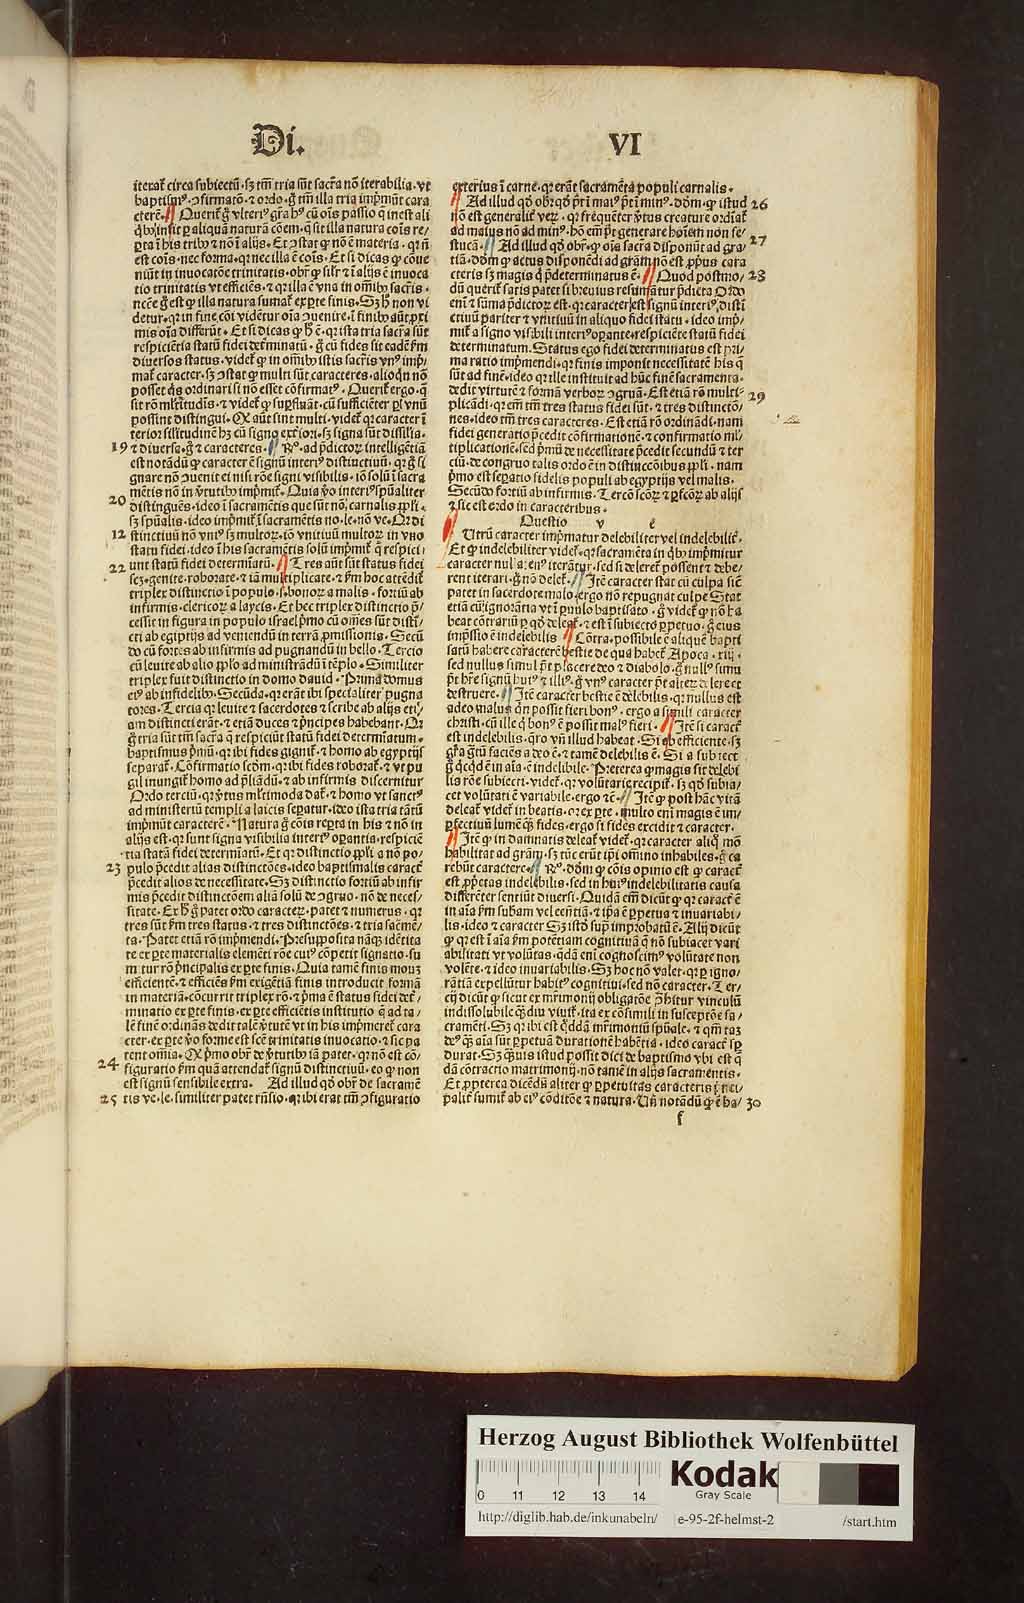 Di.
VI
iterat̃ circa subiectũ · sʒ tm̃ tria sũt sacr̃a nõ iterabilia · vt
baptism⁹ · ꝯfirmatõ · ⁊ ordo · g̃ tm̃ illa tria imp̃mũt cara
cterẽ · Querit̃ g̃ vlteri⁹ gr̃a h⁹ cũ oĩs passio q̃ inest ali
est cõis · nec forma · qr nec illa ẽ cõis · Et si dicas ꝙ cõue
niũt in inuocatõe trinitatis · obr̃ ꝙ silr̃ ⁊ ĩ alijs ẽ inuoca
tio trinitatis vt efficiẽs · ⁊ qr illa ẽ vna in om̃ibꝰ sacr̃is ·
mis oĩa differũt · Et si dicas ꝙ h̃ ẽ · qr ista tria sacr̃a sũt
respiciẽtia statũ fidei det̃minatũ · g̃ cũ fides sit eadẽ f̃m
diuersos status · videt̃ ꝙ in om̃ibꝰ istis sacr̃is vn⁹ imp̃/
mat̃ caracter · sʒ ꝯstat ꝙ multi sũt caracteres · alioqn̄ nõ
posset q̃s ordinari si nõ esset cõfirmat⁹ · Querit̃ ergo · q̃
possint distingui · Qr̃ aũt sint multi · videt̃ qr caracter ĩ
19 ⁊ diuersa · g̃ ⁊ caracteres · Rº · ad p̃dictoꝝ intelligẽtiã
est notãdũ ꝙ caracter ẽ signũ interi⁹ distinctiuũ · qr g̃ si
gnare nõ ꝯuenit ei nisi rõe signi visibilis · iõ solũ ĩ sacra
mẽtis nõ in ṽtutibꝰ imp̃mit̃ · Quia ṽo interi⁹ spũaliter
20 distinguẽs · ideo ĩ sacramẽtis que sũt nõ carnalis pp̃li ·
sʒ spũalis · ideo imp̃mit̃ ĩ sacramẽtis no · le · nõ ve · Qr di
12 stinctiuũ nõ vni⁹ sʒ multoꝝ · iõ vnitiuũ multoꝝ in vno
statu fidei · ideo ĩ his sacramẽtis solũ imp̃mit̃ q̃ respici/
22 unt statũ fidei determĩatũ · Tres aũt sũt status fidei
scʒ · genite · roborate · ⁊ iã multiplicate · ⁊ f̃m hoc attẽdit̃
triplex distinctio ĩ populo · s · bonoꝝ a malis · fortiũ ab
infirmis · clericoꝝ a laycis · Et hec triplex distinctio p̃/
cessit in figura in populo israel · pmo cũ om̃es sũt disti/
cti ab egiptijs ad veniendũ in terrã pmissionis · Secũ
do cũ fortes ab infirmis ad pugnandũ in bello · Tercio
cũ leuite ab alio pp̃lo ad ministrãdũ ĩ tẽplo · Similiter
triplex fuit distinctio in domo dauid · Prima domus
ei⁹ ab infidelibꝰ · Secũda · qr erãt ibi specialiter pugna
tores · Tercia qr leuite ⁊ sacerdotes ⁊ scribe ab alijs eti/
am distincti erãt · ⁊ etiã duces ⁊ p̃ncipes habebant · Qr
g̃ tria sũt tm̃ sacr̃a q̃ respiciũt statũ fidei determĩatum ·
baptismus p̃mũ · qr ibi fides gignit̃ · ⁊ homo ab egyptijs
separat̃ · Cõfirmatio scdm̃ · qr ibi fides roborat̃ · ⁊ vt pu
gil inungit̃ homo ad p̃liãdũ · ⁊ ab infirmis discernitur
Ordo terciũ · qr ṽtus ml̃timoda dat̃ · ⁊ homo vt sanct⁹
ad ministeriũ templi a laicis separatur · ideo ista tria tãtũ
imp̃mũt caracterẽ · Natura g̃ cõis rep̃ta in his ⁊ nõ in
alijs est · qr sunt signa visibilia interi⁹ operantis · respiciẽ
tia statũ fidei determĩatũ · Et qr distinctio pp̃li a nõ po/
23 pulo p̃cedit alias distinctiões · ideo baptismalis caract̃
p̃cedit alios de necessitate · Sʒ distinctio fortiũ ab infir
mis p̃cedit distinctõem aliã solũ de ꝯgruo · nõ de neces/
sitate · Ex h̃ g̃ patet ordo caracterꝝ · patet ⁊ numerus · qr
tres sũt f̃m tres status · ⁊ tres distinctões · ⁊ tria sacr̃mẽ/
ta · Patet etiã rõ imp̃mendi · Presupposita nãqꝫ idẽtita
te ex p̃te materialis elemẽti rõe cui⁹ cõpetit signatio · su
m tur rõ p̃ncipalis ex p̃te finis · Quia tamẽ finis mouʒ
efficientẽ · ⁊ efficiẽs f̃m exigẽtiã finis introducit formã
in materiã · cõcurrit triplex rõ · ⁊ p̃ma ẽ status fidei det̃/
minatio ex p̃te finis · ex p̃te efficiẽtis institutio q̃ ad ta/
lẽ finẽ ordinãs dedit talẽ ṽtutẽ vt in his imp̃meret̃ cara
cter · ex p̃te ṽo forme est scẽ trinitatis inuocatio · ⁊ sic pa
24 figuratio f̃m quã attendat̃ signũ distinctiuũ · eo ꝙ non
est signũ sensibile extra · Ad illud qõ obr̃ de sacramẽ
25 tis ve · le · similiter patet rñsio · qr ibi erat tm̃ ꝯfiguratio
exterius ĩ carne · qr erãt sacramẽta populi carnalis ·
Ad illud qõ obr̃ · qõ p̃ri mai⁹ p̃ri min⁹ · dõm · ꝙ istud 26
nõ est generalit̃ veꝝ · qr frequẽter ṽtus creature ordĩat̃
ad maius nõ ad min⁹ · hõ em̃ p̃t generare hoĩem non fe/
stucã · Ad illud qõ obr̃ · ꝙ oĩa sacr̃a disponũt ad gra/ 27
tiã · dõm ꝙ actus disponẽdi ad gr̃am nõ est pp̃us cara
cteris sʒ magis q̃ p̃determinatus ẽ · Quod postmo/ 28
dũ querit̃ satis patet si breuius resumãtur p̃dicta · Ordo
em̃ ⁊ sũma p̃dictoꝝ est · qr caracter est signũ interi⁹ disti
ctiuũ pariter ⁊ vnitiuũ in aliquo fidei statu · ideo imp̃/
mit̃ a signo visibili interi⁹ operante · respiciẽte statũ fidei
determinatum · Status ergo fidei determinatus est pri/
ma ratio imp̃mendi · qr finis imponit necessitatẽ his q̃
sũt ad finẽ · ideo qr ille instituit ad hũc finẽ sacramenta ·
dedit virtutẽ ⁊ formã verboꝝ ꝯgruã · Est etiã rõ multi/ 29
plicãdi · qr em̃ tm̃ tres status fidei sũt · ⁊ tres distinctõ/
nes · ideo tm̃ tres caracteres · Est etiã rõ ordinãdi · nam
fidei generatio p̃cedit cõfirmationẽ · ⁊ cõfirmatio ml̃/
tiplicationẽ · sed p̃mũ de necessitate p̃cedit secundũ ⁊ ter
ciũ · de congruo talis ordo ẽ in distinccõibus pp̃li · nam
p̃mo est sep̃atio fidelis populi ab egyptijs vel malis ·
Secũdo fortiũ ab infirmis · Tercõ scõꝝ ⁊ p̃fcõꝝ ab alijs
⁊ sic est ordo in caracteribus ·
Questio v ẽ
Utrũ caracter imp̃matur delebiliter vel indelebilit̃ ·
Et ꝙ indelebiliter videt̃ · qr sacramẽta in qbꝰ imp̃mitur
caracter nullaten⁹ iterãtur · sed si deleret̃ possent ⁊ debe/
rent iterari · g̃ nõ delet̃ · Itẽ caracter stat cũ culpa sicut
patet in sacerdote malo · ergo nõ repugnat culpe · Stat
etiã cũ ignorãtia vt ĩ paruulo baptisato · g̃ videt̃ ꝙ nõ ha
beat cõtrariũ p qõ deleat̃ · ⁊ est ĩ subiecto p̃petuo · g̃ eius
imp̃ssio ẽ indelebilis · Cõtra · possibile ẽ aliquẽ bapti
satũ habere caracterẽ bestie de qua habet̃ Apoca · xiij ·
sed nullus simul p̃t placere deo ⁊ diabolo · g̃ null⁹ simul
p̃t h̃re signũ hui⁹ ⁊ illi⁹ · g̃ vn⁹ caracter p̃t alteꝝ delere ⁊
destruere · Itẽ caracter bestie ẽ delebilis · qr nullus est
adeo malus qn̄ possit fieri bon⁹ · ergo a simili caracter
christi · cũ ille q̃ bon⁹ ẽ possit mal⁹ fieri · Itẽ si caract̃
est indelebilis · q̃ro vñ illud habeat · Si qʒ efficiente · sʒ
gr̃a g̃tũ faciẽs a deo ẽ · ⁊ tamẽ delebilis ẽ · Si a subiect
g̃ qcqd ẽ in aĩa · ẽ indelibile · Preterea ꝙ magis sit delebi
lis rõe subiecti · videt̃ · qr voluntarie recipit̃ · sʒ qõ subia/
cet volũtati ẽ variabile · ergo ⁊c̃ · Itẽ ꝙ post hãc vitã
deleat̃ videt̃ in beatis · qr ex p̃te · multo em̃ magis ẽ im/
p̃fectiuũ lumẽ qꝫ fides · ergo si fides excidit ⁊ caracter ·
Itẽ ꝙ in damnatis deleat̃ videt̃ · qr caracter aliq̃ mõ
habilitat ad gr̃am · sʒ tũc erũt ip̃i om̃ino inhabiles · g̃ ca
rebũt caractere · Rº · dõm ꝙ cõis opinio est ꝙ caract̃
est pp̃etas indelebilis · sed in hui⁹ indelebilitatis causa
differẽter sentiũt diuersi · Quidã em̃ dicũt ꝙ qr caract̃ ẽ
in aĩa f̃m subam vel eẽntiã · ⁊ ip̃a ẽ p̃petua ⁊ inuariabi/
lis · ideo ⁊ caracter · Sʒ istð sup̃ improbatũ ẽ · Alij dicũt
ꝙ qr est ĩ aĩa f̃m potẽtiam cognitiuã q̃ nõ subiacet vari
abilitati vt volũtas · q̃dã em̃ cognoscim⁹ volũtate non
volẽte · ⁊ ideo inuariabilis · Sʒ hoc nõ valet · qr p igno/
rãtiã expellũtur habit⁹ cognitiui · sed nõ caracter · Ter/
cij dicũt ꝙ sicut ex mr̃imonij obligatõe ꝯ̃hitur vinculũ
indissolubile qꝫdiu viuit̃ · ita ex cõsimili in susceptõe sa/
crameti · Sʒ qr ibi est q̃ddã mr̃imoniũ spũale · ⁊ qm̃ tã
de⁹ qꝫ aĩa sũt p̃petuã durationẽ habẽtia · ideo caract̃ sp̃
durat · Sʒ qꝫuis istud possit dici de baptismo vbi est q̃
dã contractio matrimonij · nõ tamẽ in alijs sacramentis ·
Et ppterea dicẽdũ aliter ꝙ p̃petuitas caracteris p̃nci/
palit̃ sumit̃ ab ei⁹ cõditõe ⁊ natura · Uñ notãdũ ꝙ ẽ ha/ 30
f
Herzog August Bibliothek Wolfenbüttel
Kodak
Gray Scale
0 11 12 13 14
http://diglib.hab.de/inkunabeln/ e-95-2f-helmst-2 /start.htm